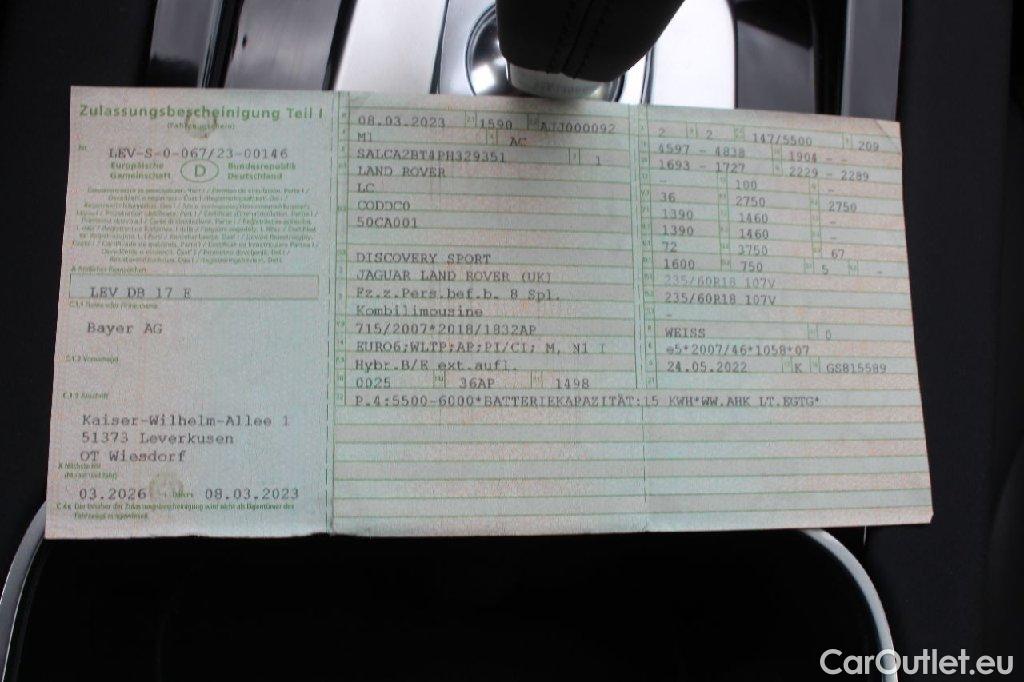 Zulassungsbescheinigung Teil I
(Fahrzeugschein)
Nr. LEV-S-0-067/23-00146
Europäische Gemeinschaft D Bundesrepublik Deutschland
A Amtliches Kennzeichen
LEV DB 17 E
C.1.1 Name oder Firmenname
Bayer AG
C.1.2 Vorname(n)
C.1.3 Anschrift
Kaiser-Wilhelm-Allee 1
51373 Leverkusen
OT Wiesdorf
03.2026 08.03.2023
C.4c Der Inhaber der Zulassungsbescheinigung wird nicht als Eigentümer des
Fahrzeugs ausgewiesen.
08.03.2023 1590 AJJ000092
M1 AC
SALCA2BT4PH329351 1
LAND ROVER
LC
50CA001
DISCOVERY SPORT
JAGUAR LAND ROVER (UK)
Fz.z.Pers.bef.b. 8 Spl.
Kombilimousine
715/2007*2018/1832AP
EURO6;WLTP;AP;PI/CI; M, N1 I
Hybr.B/E ext.aufl.
0025 36AP 1498
P.4:5500-6000*BATTERIEKAPAZITÄT:15 KWH*WW.AHK LT.EGTG*
2 2 147/5500 209
4597 - 4838 1904 - -
1693 - 1727 2229 - 2289
- 100 -
36 2750 2750
1390 1460 -
1390 1460 -
72 3750 67
1600 750 5 -
235/60R18 107V
235/60R18 107V
-
WEISS 0
e5*2007/46*1058*07
24.05.2022 K GS815589
CarOutlet.eu